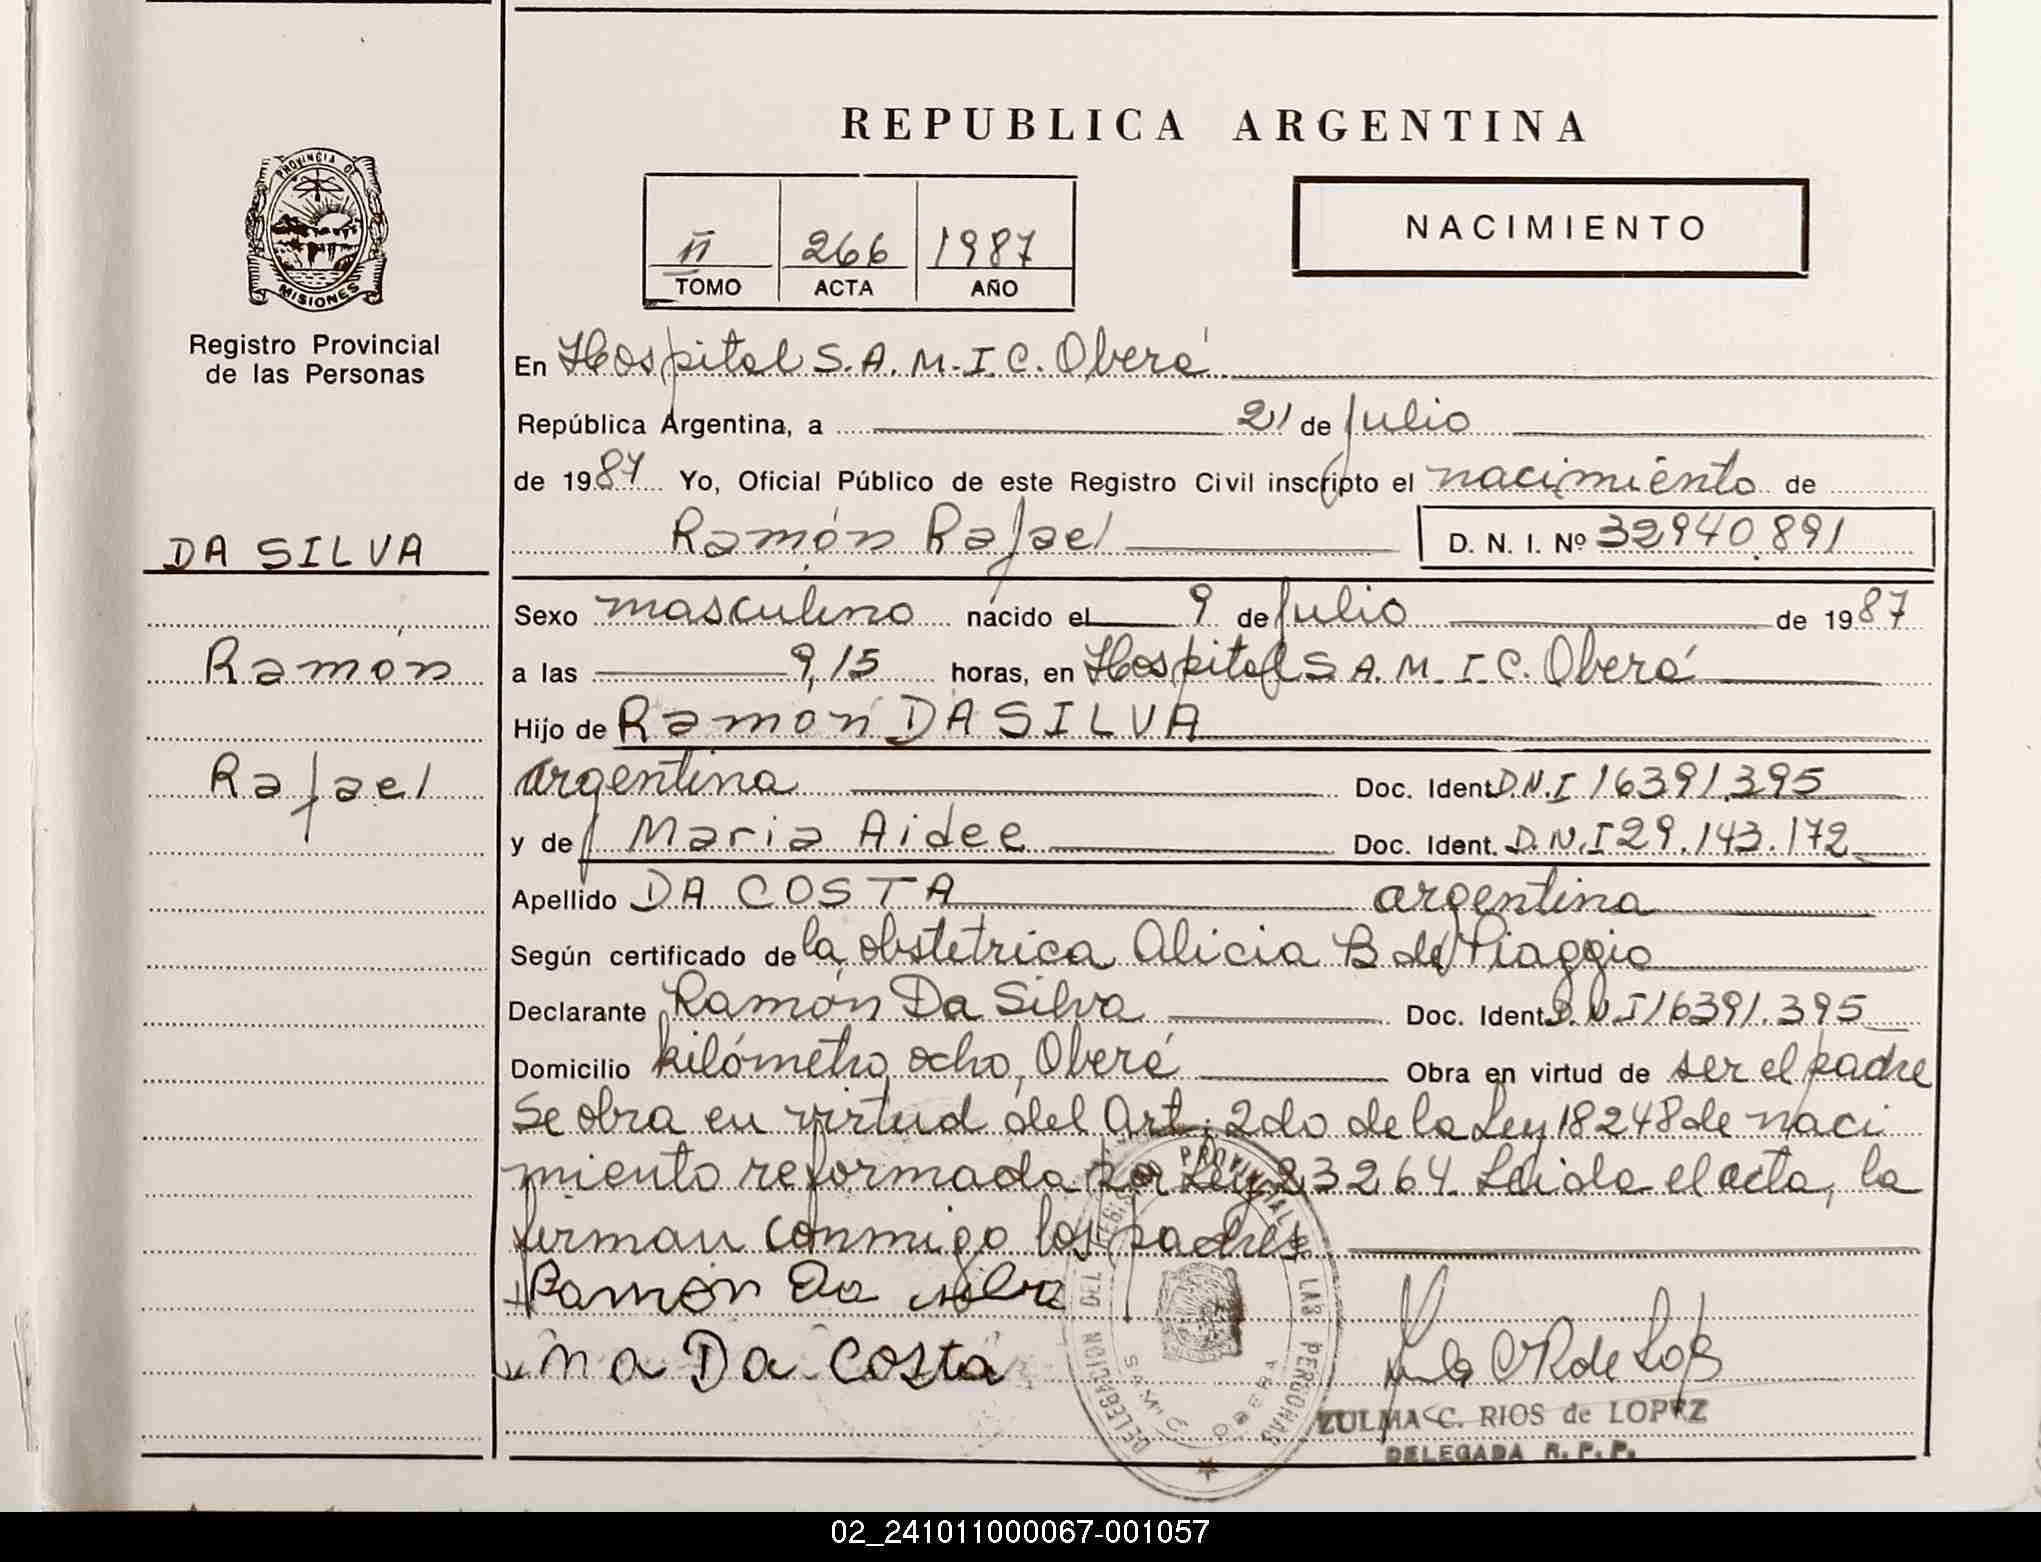 REPUBLICA ARGENTINA
PROVINCIA DE
MISIONES
Registro Provincial
de las Personas
II 266 1987
TOMO ACTA AÑO
NACIMIENTO
En Hospital S.A.M.I.C. Oberá
República Argentina, a 21 de Julio
de 1987 Yo, Oficial Público de este Registro Civil inscripto el nacimiento de
Ramón Rafael D. N. I. Nº 32940.891
DA SILVA
Ramón
Rafael
Sexo masculino nacido el 9 de Julio de 1987
a las 9,15 horas, en Hospital S A.M.I.C. Oberá
Hijo de Ramón DA SILVA
argentina Doc. Ident D.N.I 16391.395
y de Maria Aidee Doc. Ident. D.N.I 29.143.172
Apellido DA COSTA argentina
Según certificado de la obstetrica Alicia B de Piaggio
Declarante Ramón Da Silva Doc. Ident. D.N.I 16391.395
Domicilio kilómetro ocho, Oberá Obra en virtud de ser el padre
Se obra en virtud del Art. 2do de la Ley 18248 de naci
miento reformada por Ley 23264. Leida el acta, la
firman conmigo los padres
Ramón Da silva
Da Costa
DELEGACION DEL REGISTRO PROVINCIAL DE LAS PERSONAS
S.A.M.I.C. OBERA
ZULMA C. RIOS de LOPEZ
DELEGADA R. P. P.
02_241011000067-001057